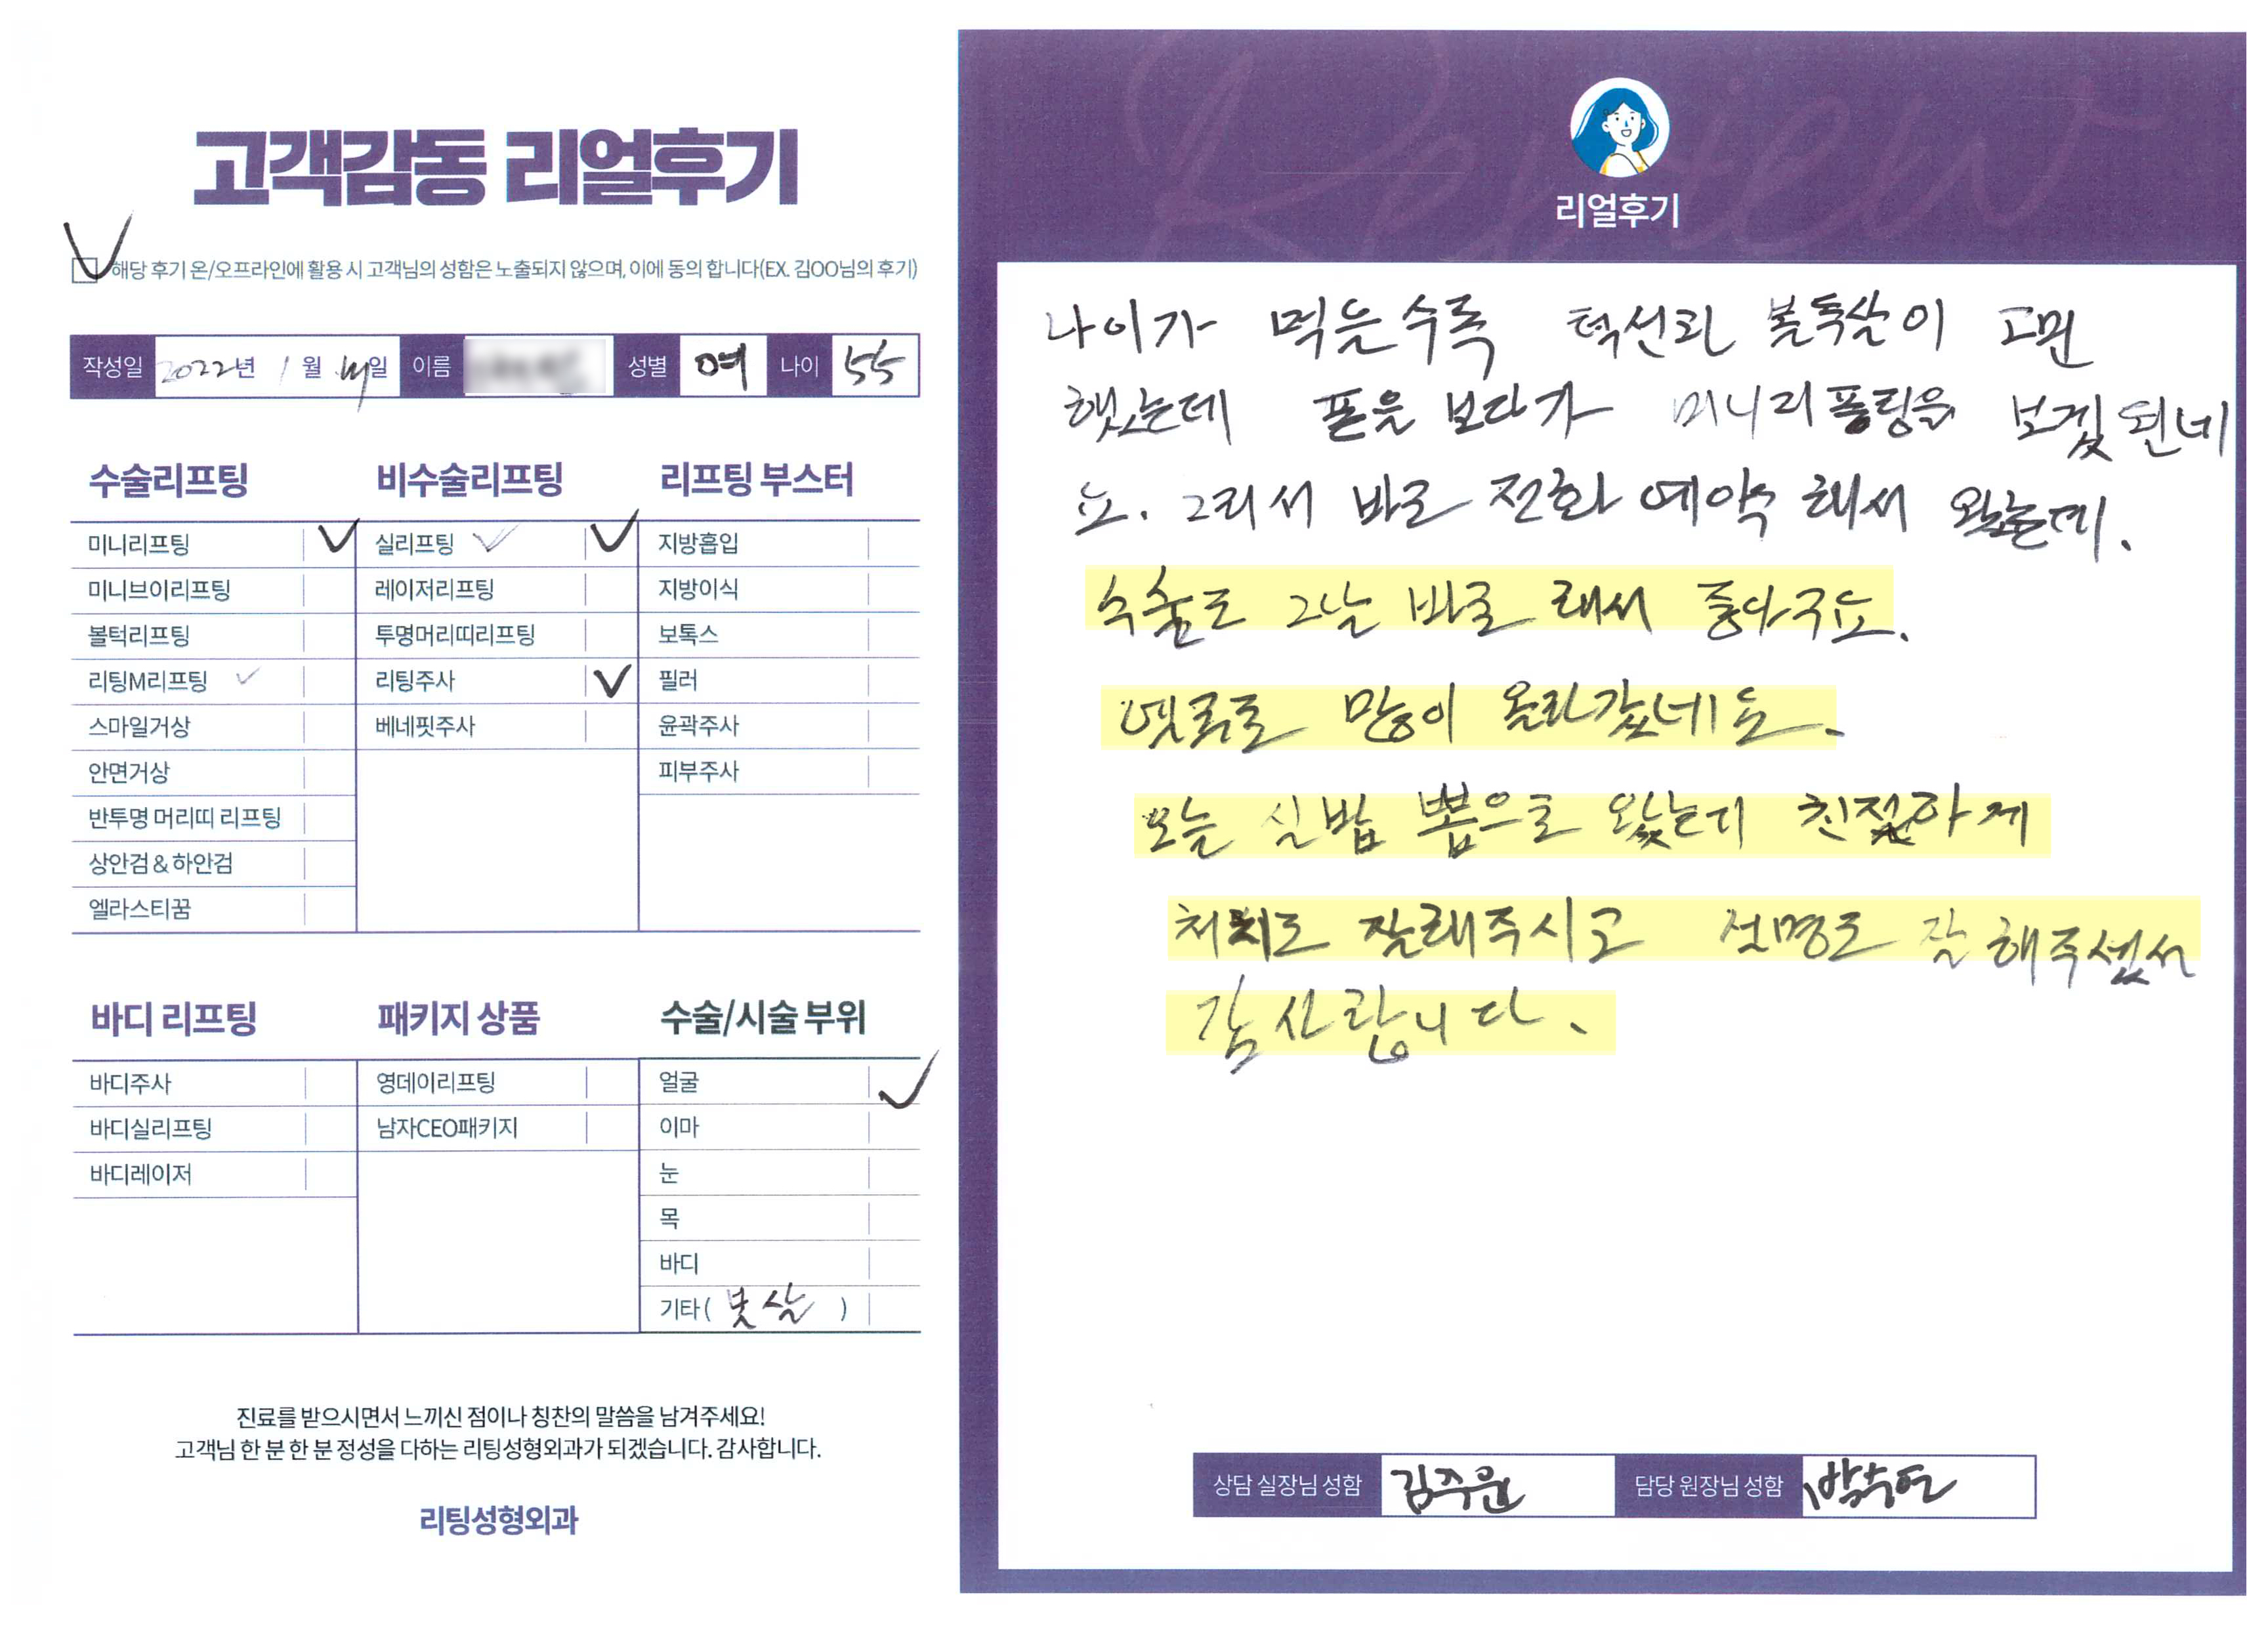 고객감동 리얼후기
해당 후기 온/오프라인에 활용 시 고객님의 성함은 노출되지 않으며, 이에 동의 합니다(EX. 김OO님의 후기)
작성일 2022년 1월 일 이름 성별 여 나이 55
수술리프팅
미니리프팅
미니브이리프팅
볼턱리프팅
리팅M리프팅
스마일거상
안면거상
반투명 머리띠 리프팅
상안검 & 하안검
엘라스티꿈
비수술리프팅
실리프팅
레이저리프팅
투명머리띠리프팅
리팅주사
베네핏주사
리프팅 부스터
지방흡입
지방이식
보톡스
필러
윤곽주사
피부주사
바디 리프팅
바디주사
바디실리프팅
바디레이저
패키지 상품
영데이리프팅
남자CEO패키지
수술/시술 부위
얼굴
이마
눈
목
바디
기타( 볼살 )
진료를 받으시면서 느끼신 점이나 칭찬의 말씀을 남겨주세요!
고객님 한 분 한 분 정성을 다하는 리팅성형외과가 되겠습니다. 감사합니다.
리팅성형외과
Review
리얼후기
나이가 먹을수록 턱선과 볼톡살이 고민
했는데 폰을 보다가 미니리퐁팅을 보겠된네
요. 그래서 바로 전화 예약 해서 왔는데.
수술도 그날 바로 해서 좋아구요.
옛쪽로 많이 올라갔네요.
오늘 실밥 뽑으로 왔는데 친절하게
처치도 잘해주시고 설명도 잘 해주셨서
감사합니다.
상담 실장님 성함 김주윤 담당 원장님 성함